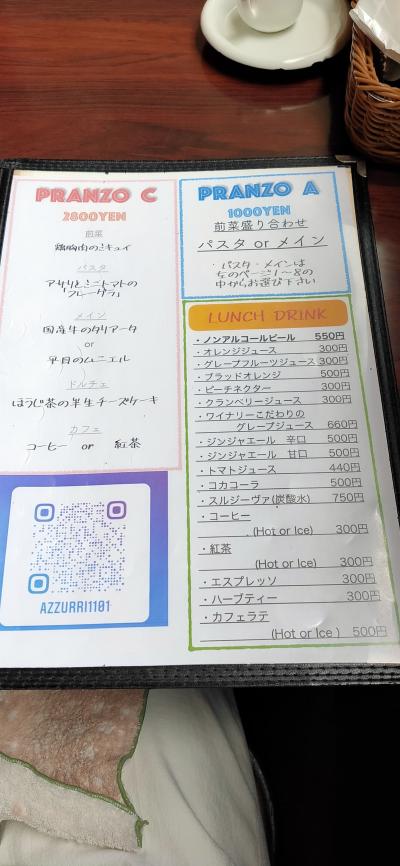 PRANZO C
2800YEN
前菜
鶏胸肉のミキュイ
パスタ
アサリとミニトマトの
「フレーグラ」
メイン
国産牛のタリアータ
or
平目のムニエル
ドルチェ
ほうじ茶の半生チーズケーキ
カフェ
コーヒー or 紅茶
AZZURRI1101
PRANZO A
1000YEN
前菜盛り合わせ
パスタ or メイン
・パスタ・メインは
左のページ1〜8の
中からお選び下さい
LUNCH DRINK
・ノンアルコールビール 550円
・オレンジジュース 300円
・グレープフルーツジュース 300円
・ブラッドオレンジ 500円
・ピーチネクター 300円
・クランベリージュース 300円
・ワイナリーこだわりの
グレープジュース 660円
・ジンジャエール 辛口 500円
・ジンジャエール 甘口 500円
・トマトジュース 440円
・コカコーラ 500円
・スルジーヴァ(炭酸水) 750円
・コーヒー
(Hot or Ice) 300円
・紅茶
(Hot or Ice) 300円
・エスプレッソ 300円
・ハーブティー 300円
・カフェラテ
(Hot or Ice) 500円